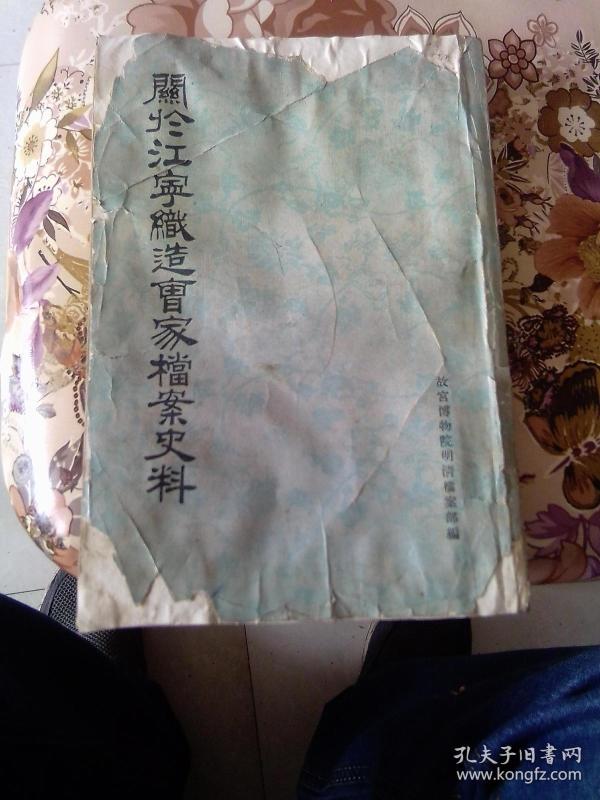 關於江寧織造曹家檔案史料
故宮博物院明清檔案部編
孔夫子旧書网
www.kongfz.com